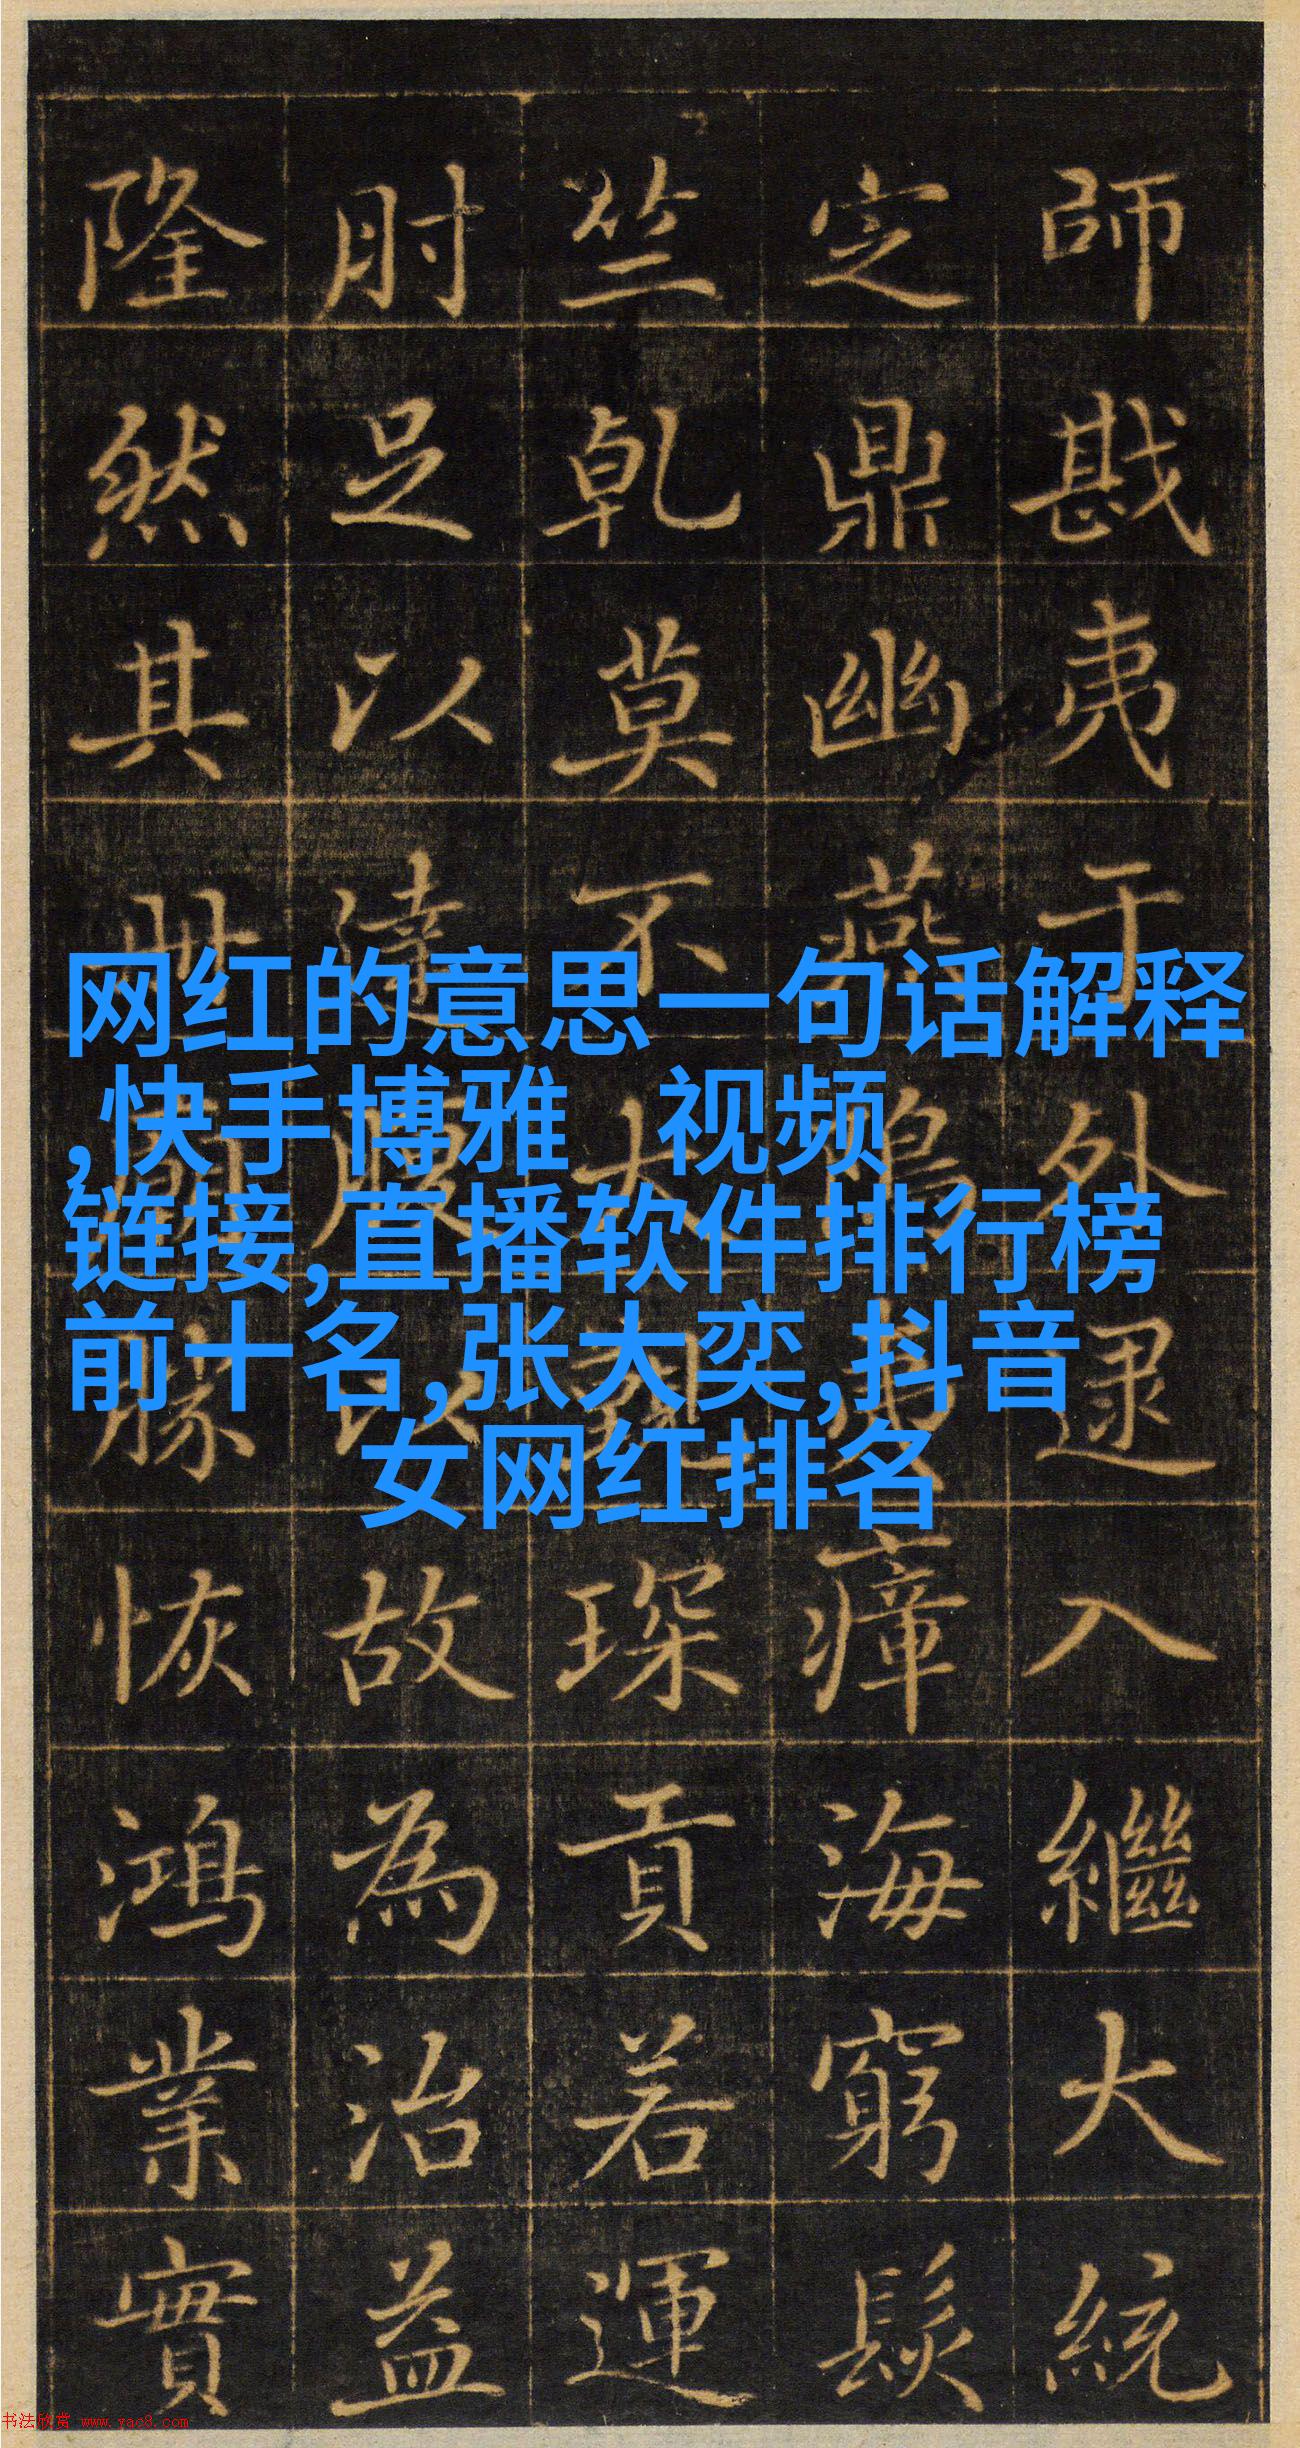 師戡夷于外逮入繼大統
定鼎幽燕瘴海窮髮
竺乾莫不大琛貢若運
肘足以達以故為治益
隆然其冊勝恢鴻業實
网红的意思一句话解释
,快手博雅 视频
链接,直播软件排行榜
前十名,张大奕,抖音
女网红排名
书法欣赏 www.yac8.com